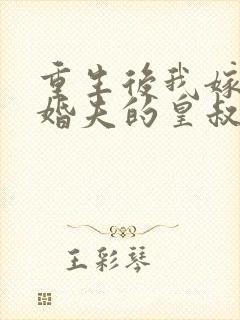 重生後我嫁
婚夫的皇叔
王彩琴